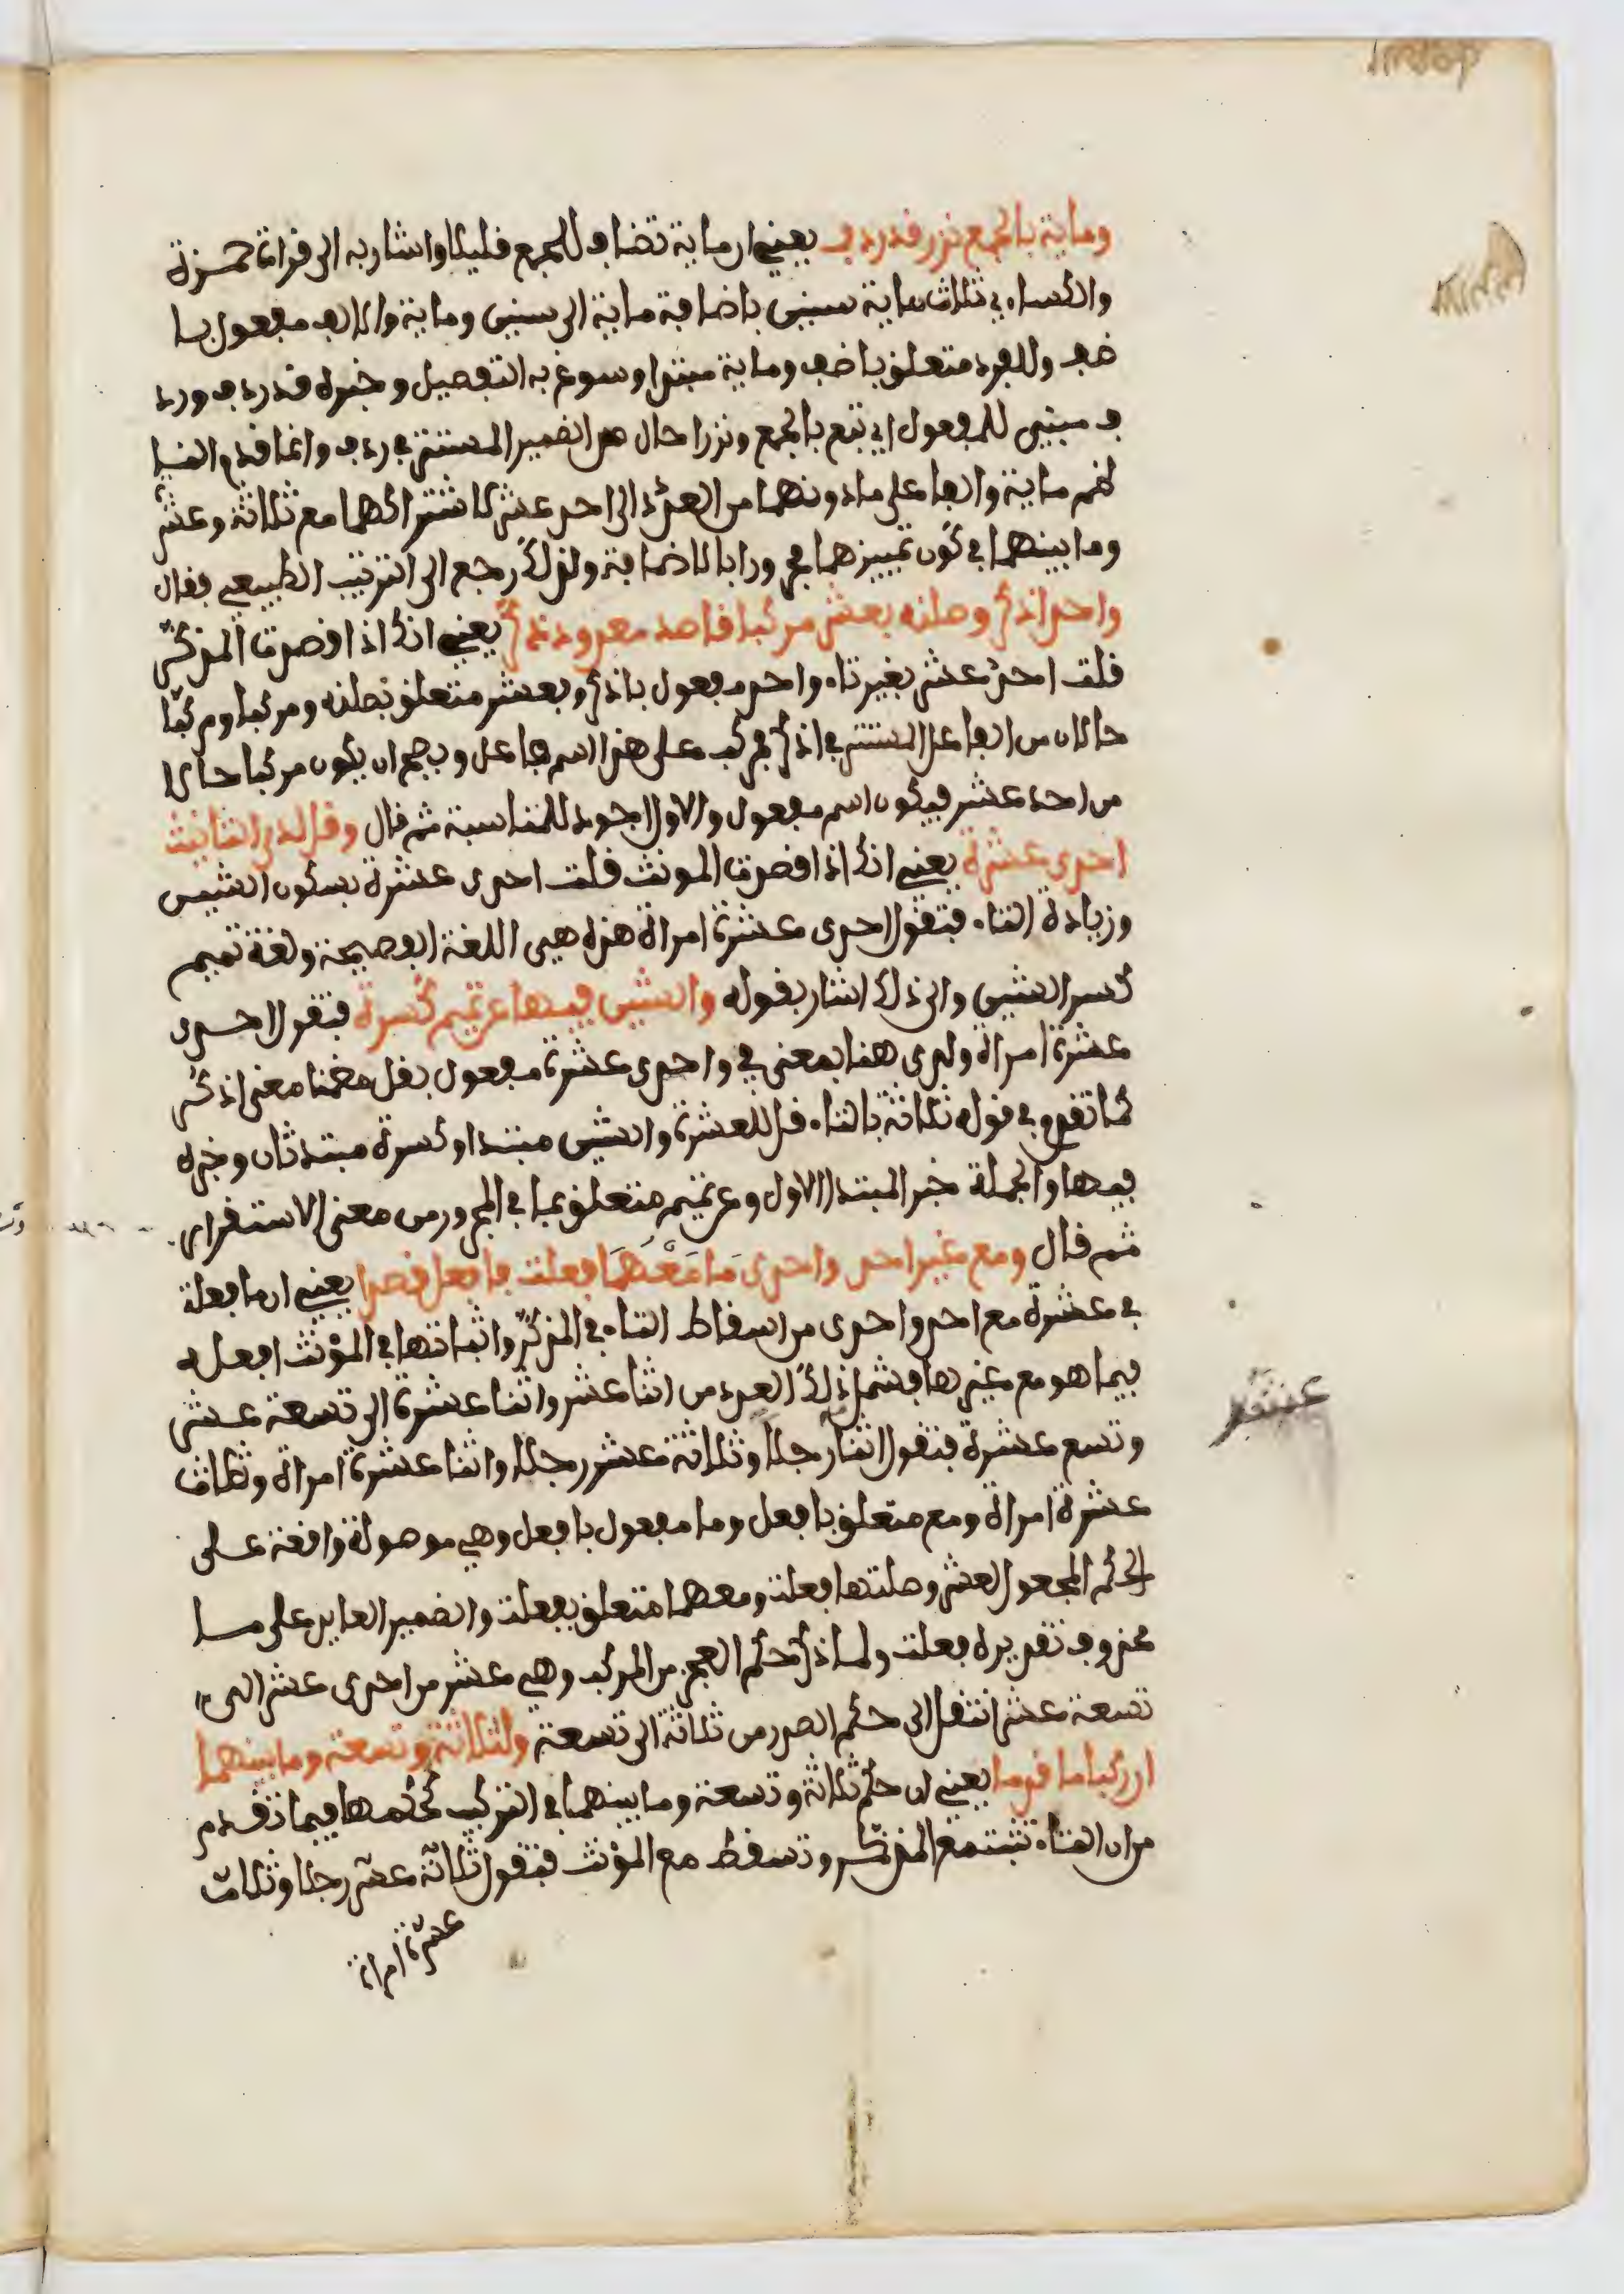 وماية بالجمع نزرا قد ردف يعني ان ماية تضاف للجمع قليلا واشار به الى قراة حمزة
والكساءي ثلاث ماية سنين باضافة ماية الى سنين وماية والالف مفعول با
ضف وللفرد متعلق باضف وماية مبتدا وسوغ به التفصيل وخبره قد ردف ورد
ف مبني للمفعول اي تبع بالجمع ونزرا حال من الضمير المستتر في ردف وانما قدم النا
ظم ماية والفا على ما دونهما من العدد الى احد عشر لاشتراكهما مع ثلاثة وعشر
وما بينهما في كون تمييزهما مجرورا بالاضافة ولذلك رجع الى الترتيب الطبيعي فقال
واحد اذكر وصلنه بعشر مركبا قاصد معدود ذكر يعني انك اذا قصدت المذكر
قلت احد عشر بغير تاء واحد مفعول باذكر وبعشر متعلق بصلنه ومركبا ومركبا
حالان من الفاعل المستتر في اذكر فمركب على هذا اسم فاعل ويصح ان يكون مركبا حالا
من احد عشر فيكون اسم مفعول والاول اجود للمناسبة ثم قال وقل لدى التانيث
احدى عشرة يعني انك اذا قصدت المونث قلت احدى عشرة بسكون الشين
وزيادة التاء فتقول احدى عشرة امراة هذه هي اللغة الفصيحة ولغة تميم
كسر الشين والى ذلك اشار بقوله والشين فيها عن تميم كسرة فتقول احدى
عشرة امراة ولدى هنا بمعنى في واحدى عشرة مفعول بقل مضمنا معنى اذكر
كما تقدم في قوله ثلاثة بالتاء قل للعشرة والشين مبتدا وكسرة مبتدا ثان وخبره
فيها والجملة خبر المبتدا الاول وعن تميم متعلق بما في المجرور من معنى الاستقرار
ثم قال ومع غير احد واحدى مَا مَعْهُمَا فعلت فافعل قصدا يعني ان ما فعلة
في عشرة مع احد واحدى من اسقاط التاء في المذكر واثباتها في المؤنث افعله
فيما هو مع غيرها فشمل ذلك العدد من اثنا عشر واثنا عشرة الى تسعة عشر
وتسع عشرة فتقول اثنا رجلا وثلاثة عشر رجلا واثنا عشرة امراة وثلاث
عشرة امراة ومع متعلق بافعل وما مفعول بافعل وهي موصولة واقعة على
الحكم المجعول لعشر وصلتها فعلت ومعهما متعلق بفعلت والضمير العايد على ما
محذوف تقديره فعلت ولما ذكر حكم العجز من المركب وهي عشر من احدى عشر الى
تسعة عشر انتقل الى حكم الصدر من ثلاثة الى تسعة ولثلاثة وتسعة وما بينهما
ان ركبا ما قدما يعني ان حكم ثلاثة وتسعة وما بينهما في التركيب كحكمها فيما تقدم
من ان التاء تثبت مع المذكر وتسقط مع المؤنث فتقول ثلاثة عشر رجلا وثلاث
عشرة امراة